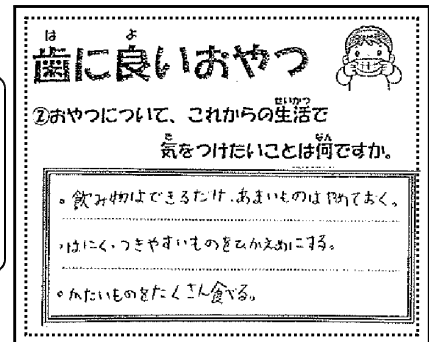 は よ
歯に良いおやつ
せいかつ
②おやつについて、これからの生活で
き なん
気をつけたいことは何ですか。
。飲み物はできるだけ、あまいものはやめておく。
・はにく、つきやすいものをひかえめにする。
。かたいものをたくさん食べる。